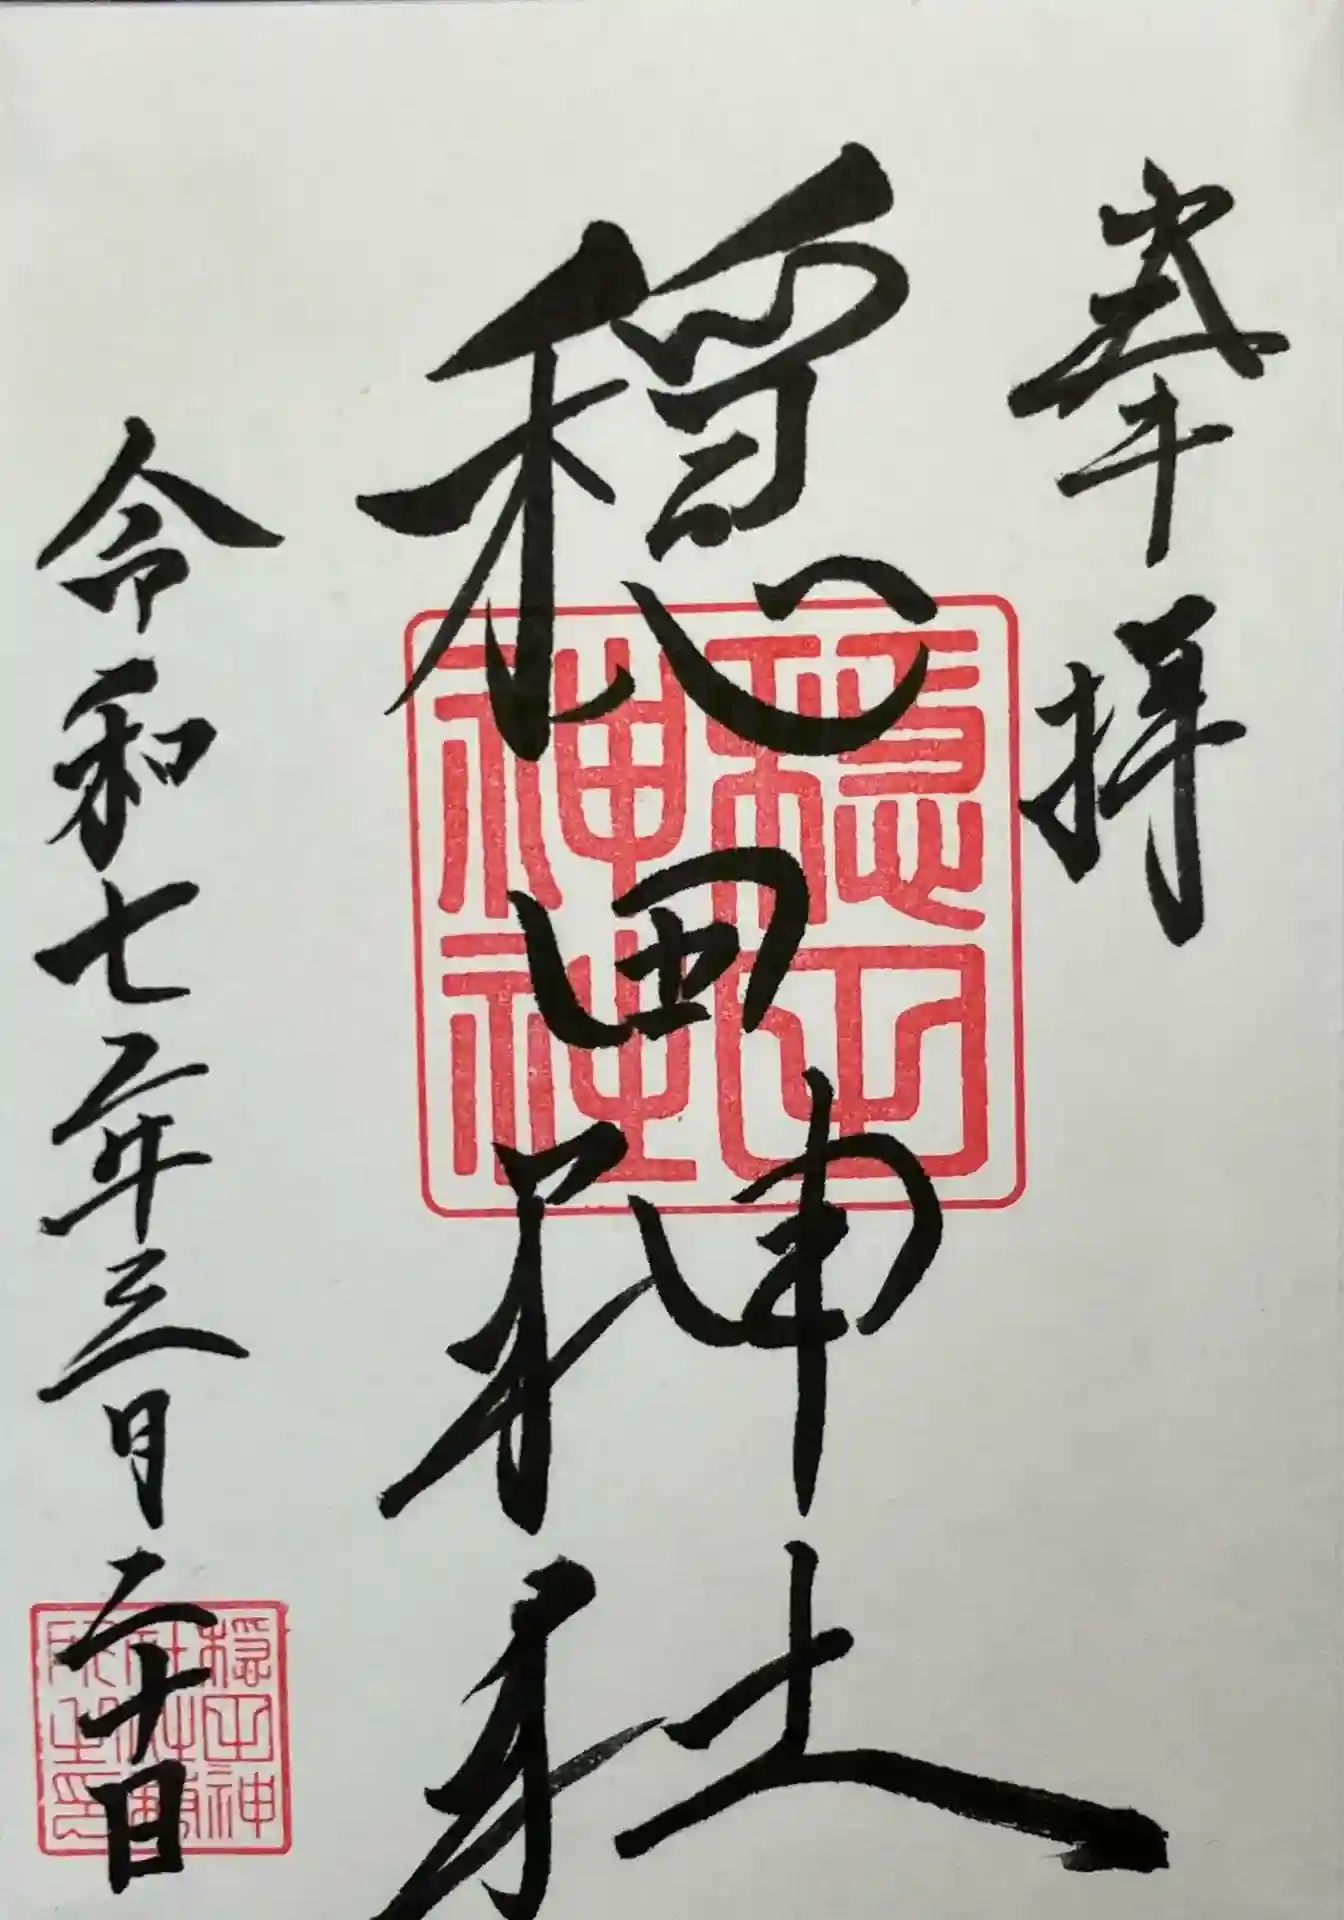 奉拝
穏田神社
令和七年三月二十日
穏田
神社
穏田神
社社務
所之印